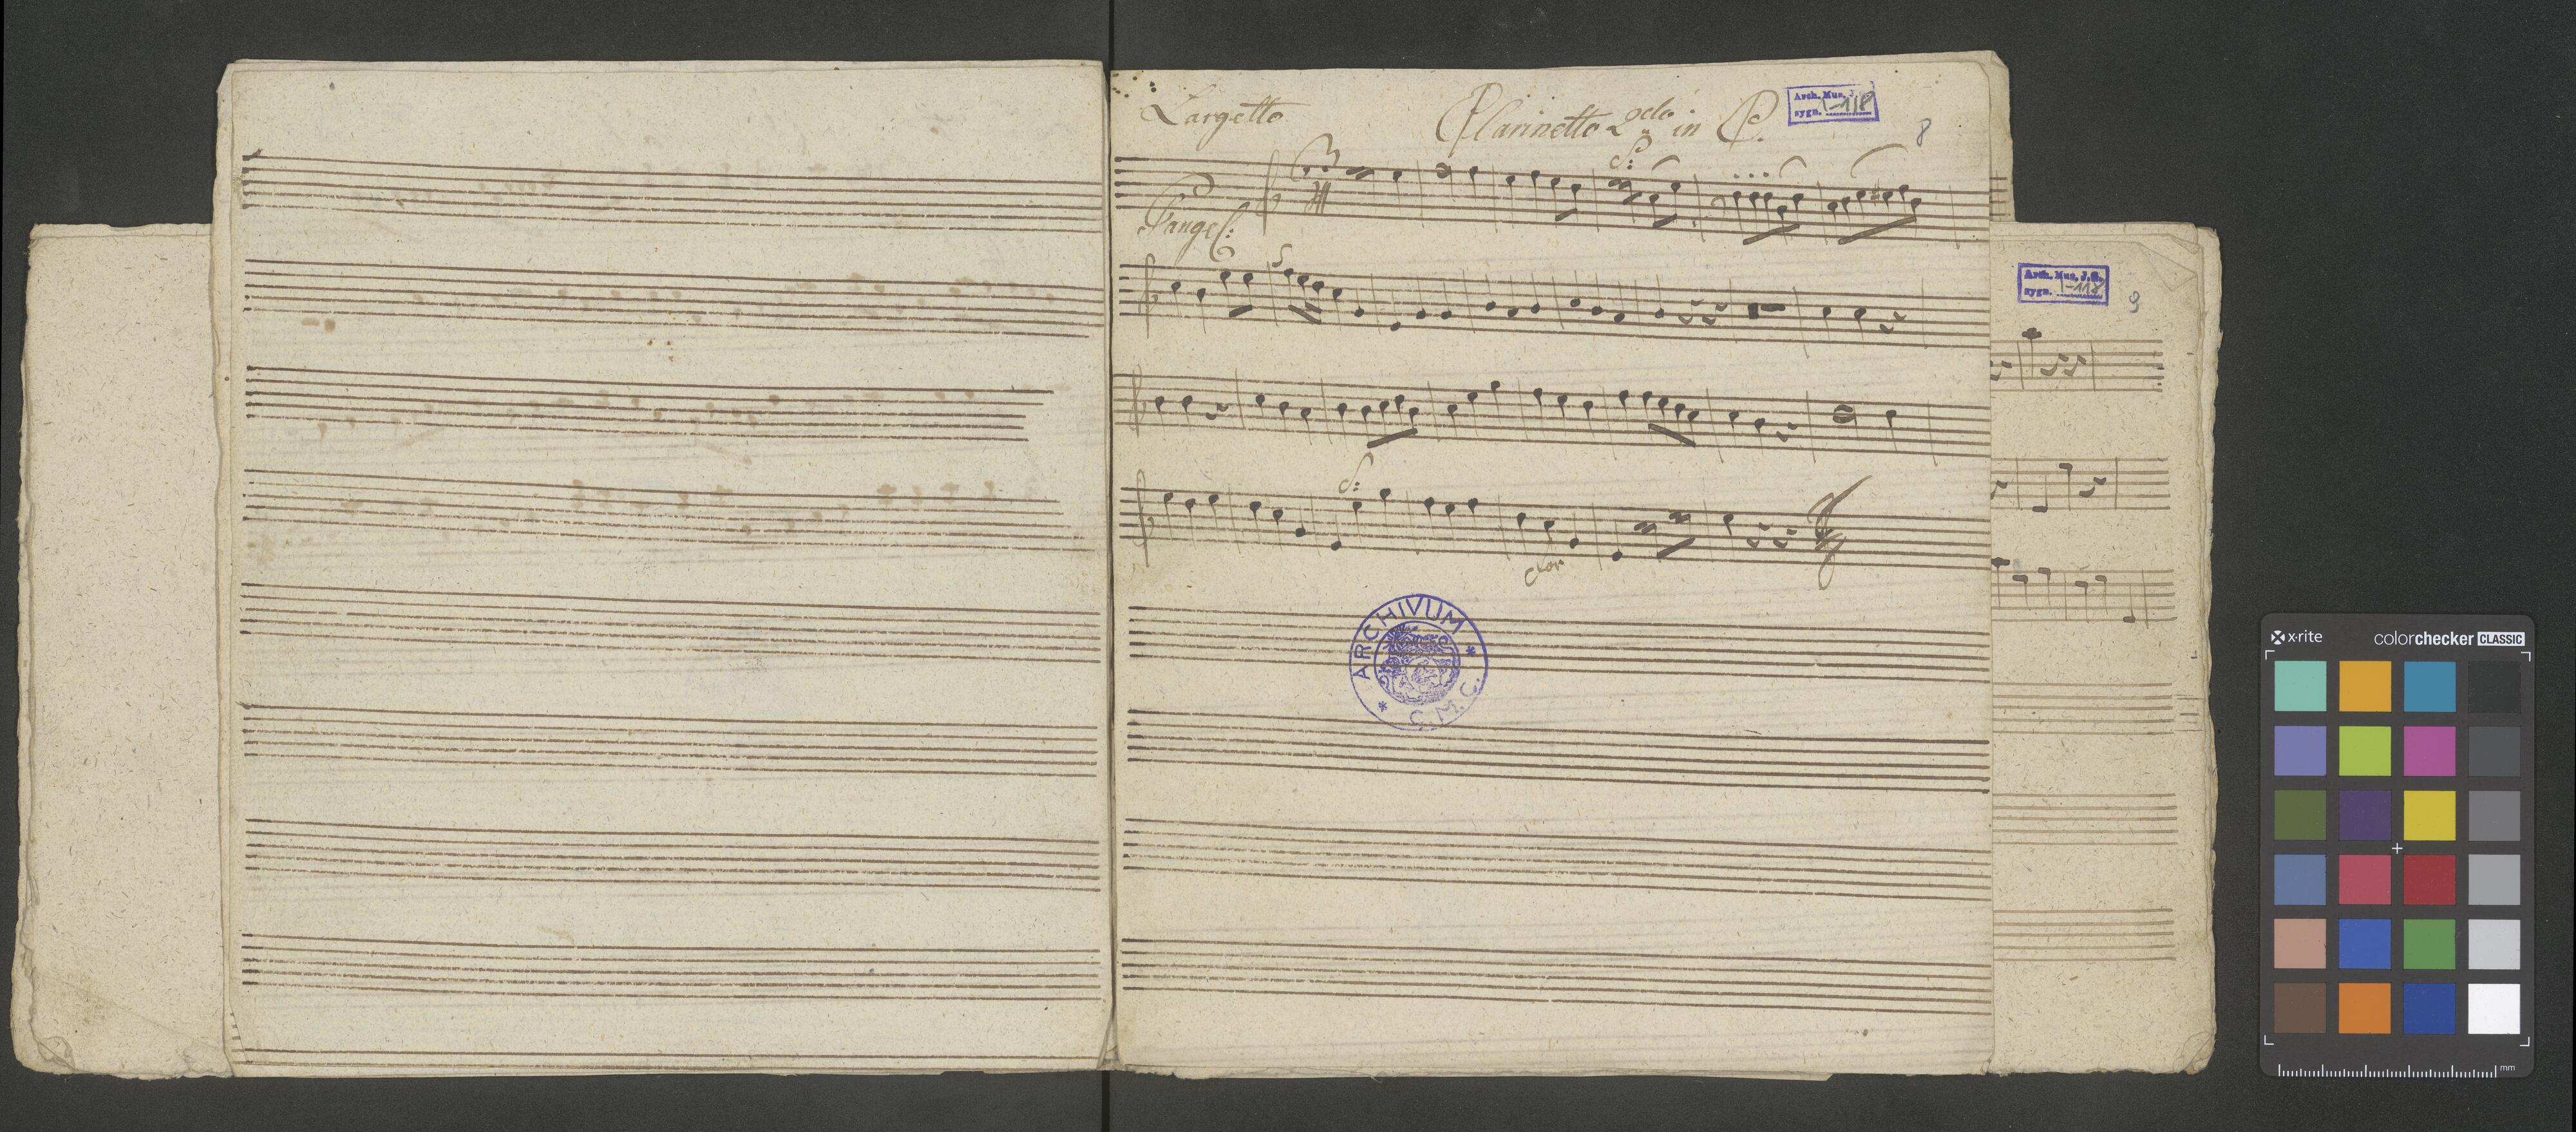 Largetto
Clarinetto 2do in C.
Arch. Mus. J.
sygn. I-118
8
Pange l:
S:
Arch. Mus. J.G.
sygn. I-118
9
S:
ARCHIVUM
C. M. C.
x-rite colorchecker CLASSIC
mm